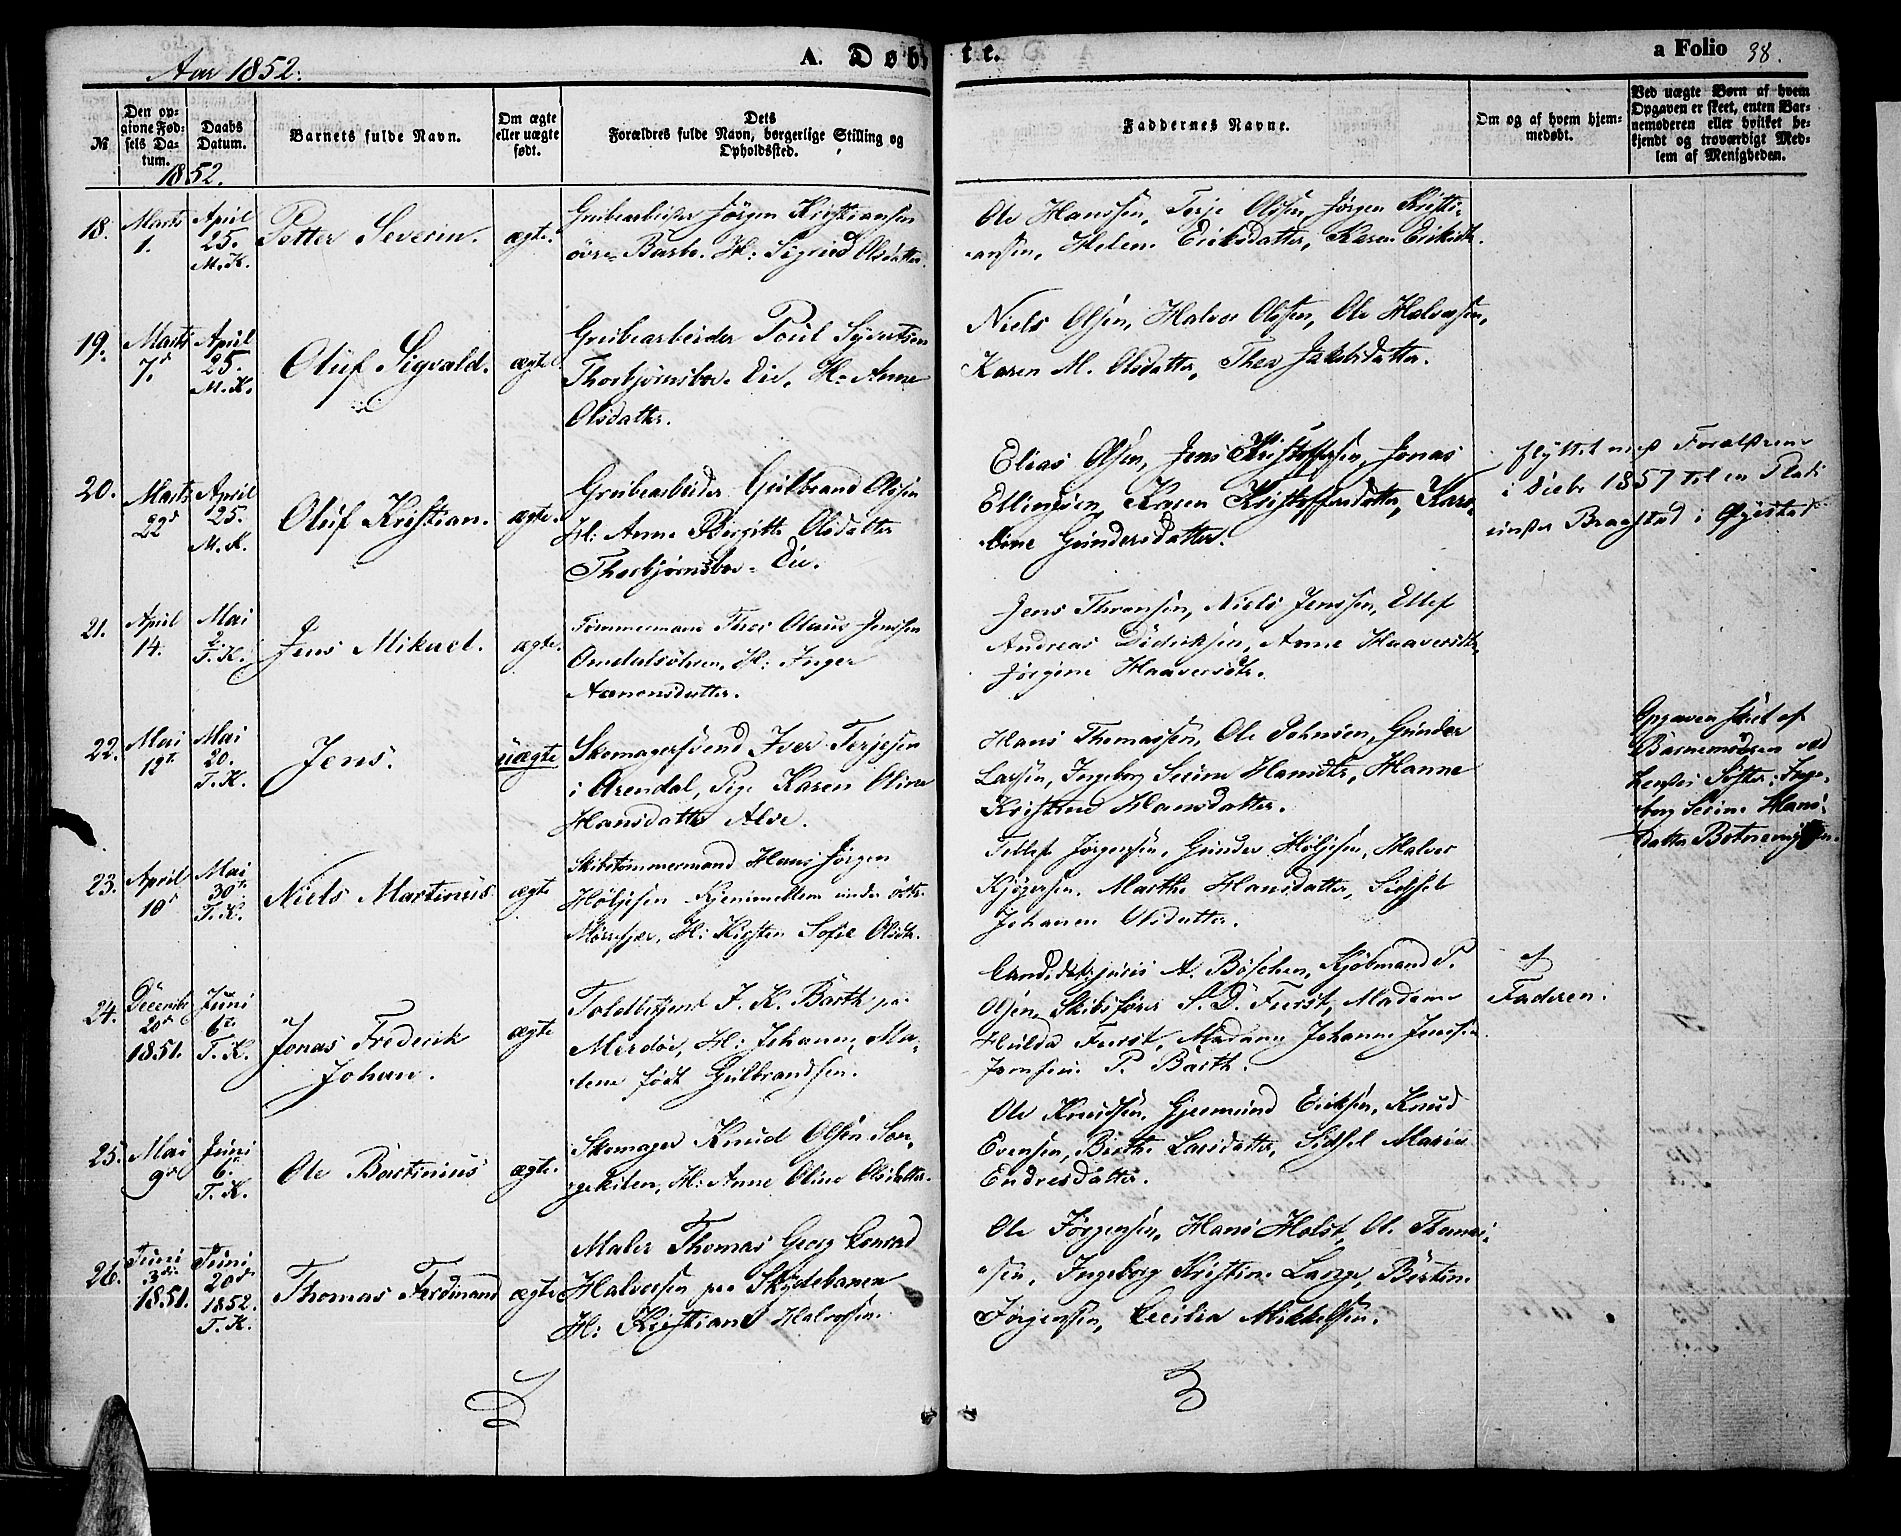 Aar 1852.
A. Døbte.
a Folio 38.
№
Den op-
givne Fød-
sels Da-
tum.
Daabs
Datum.
1852.
Barnets fulde Navn.
Om ægte
eller uægte
født.
Dets
Forældres fulde Navn, borgerlige Stilling og
Opholdssted.
Faddernes Navne.
Om og af hvem hjem-
medøbt.
Ved uægte Børn af hvem
Opgaven er skeet, enten Bar-
nemoderen eller hvilket be-
kjendt og troværdigt Med-
lem af Menigheden.
18.
Marts
1.
April
25.
M. K.
Petter Severin.
ægte.
Grubearbeider Jörgen Kristiansen
övre Barbo. H: Sigrid Olsdatter.
Ole Hanssen, Terje Olssen, Jörgen Kristi-
ansen, Helene Eriksdatter, Karen Eriksdtr.
19.
Marts
7d
April
25.
M. K.
Oluf Sigvald.
ægte
Grubearbeider Poul Syvertsen
Thorbjørnsboe Eie, H: Anne
Olsdatter.
Niels Olsen, Halvor Olssen, Ole Halvorsen,
Karen M. Olsdatter, Thea Jakobsdatter.
20.
Marts
22d
April
25.
M. K.
Oluf Kristian.
ægte.
Grubearbeider Gulbrand Olssen
H: Anne Birgitte Olsdatter
Thorbjørnsboe Eie.
Elias Olsen, Jens Kristoffersen, Jonas
Ellingsen, Karen Kristoffersdatter, Kare-
lene Gundersdatter.
flyttet med Forældrene
i Decbr 1857 til en Plads
under Bragstad i Øyestad
21.
April
14.
Mai
2.
T. K.
Jens Mikael.
ægte.
Tömmermand Thor Olaus Jenssen
Omdalsöhren, H: Inger
Aanonsdatter.
Jens Thronsen, Niels Jenssen, Ellef
Andreas Dideriksen, Anne Haaversdtr,
Jörgine Haaversdtr.
22.
Mai
12te
Mai
20.
T. K.
Jens.
uægte
Skomagersvend Iver Terjesen
i Arendal, Pige Karen Oline
Hansdatter Alve.
Hans Thomassen, Ole Johnsen, Gunder
Larsen, Ingeborg Serine Hansdtr, Hanne
Kristine Hansdatter.
Opgaven skeet af
Barnemoderen ved
hendes Søster: Inge-
borg Serine Hans-
datter
23.
April
10d
Mai
30te
T. K.
Niels Martinus
ægte
Skibstömmermand Hans Jörgen
Höljesen Kjennemellem under östre
Mörrefjær, H: Kirsten Sofie Olsdtr.
Tellef Jörgensen, Gunder Höljesen, Halvor
Kjögersen, Marthe Hansdatter, Sidsel
Johanne Olsdatter.
24.
Decembr
20d
1851.
Juni
6te
T. K.
Jonas Frederik
Johan.
ægte
Toldbetjent J. K. Barth paa
Merdöe, H: Johanne Ma-
lene født Gulbrandsen.
Candidat juris A. Böschen, Kjöbmand P.
Olsen, Skibsfører S. D. Furst, Madame
Hulda Furst, Madame Johanne Jenssen
P. Barth.
af
Faderen.
25.
Mai
9de
Juni
6.
T. K.
Ole Bertinius
ægte.
Skomager Knud Olsen Son-
gekilen, H: Anne Oline Olsdatter.
Ole Knudsen, Gjermund Eriksen, Knud
Evensen, Berthe Larsdatter, Sidsel Marie
Endresdatter.
26.
Juni
3die
1851.
Juni
20de
1852.
T. K.
Thomas Ferdinand
ægte
Maler Thomas Georg Conrad
Halvorsen paa Skydebanen
H: Kristiane Halvorsen.
Ole Jörgensen, Hans Holst, Ole Thomas-
sen, Ingeborg Kristine Lange, Bertine
Jörgensen, Cecilia Mikkelsen.